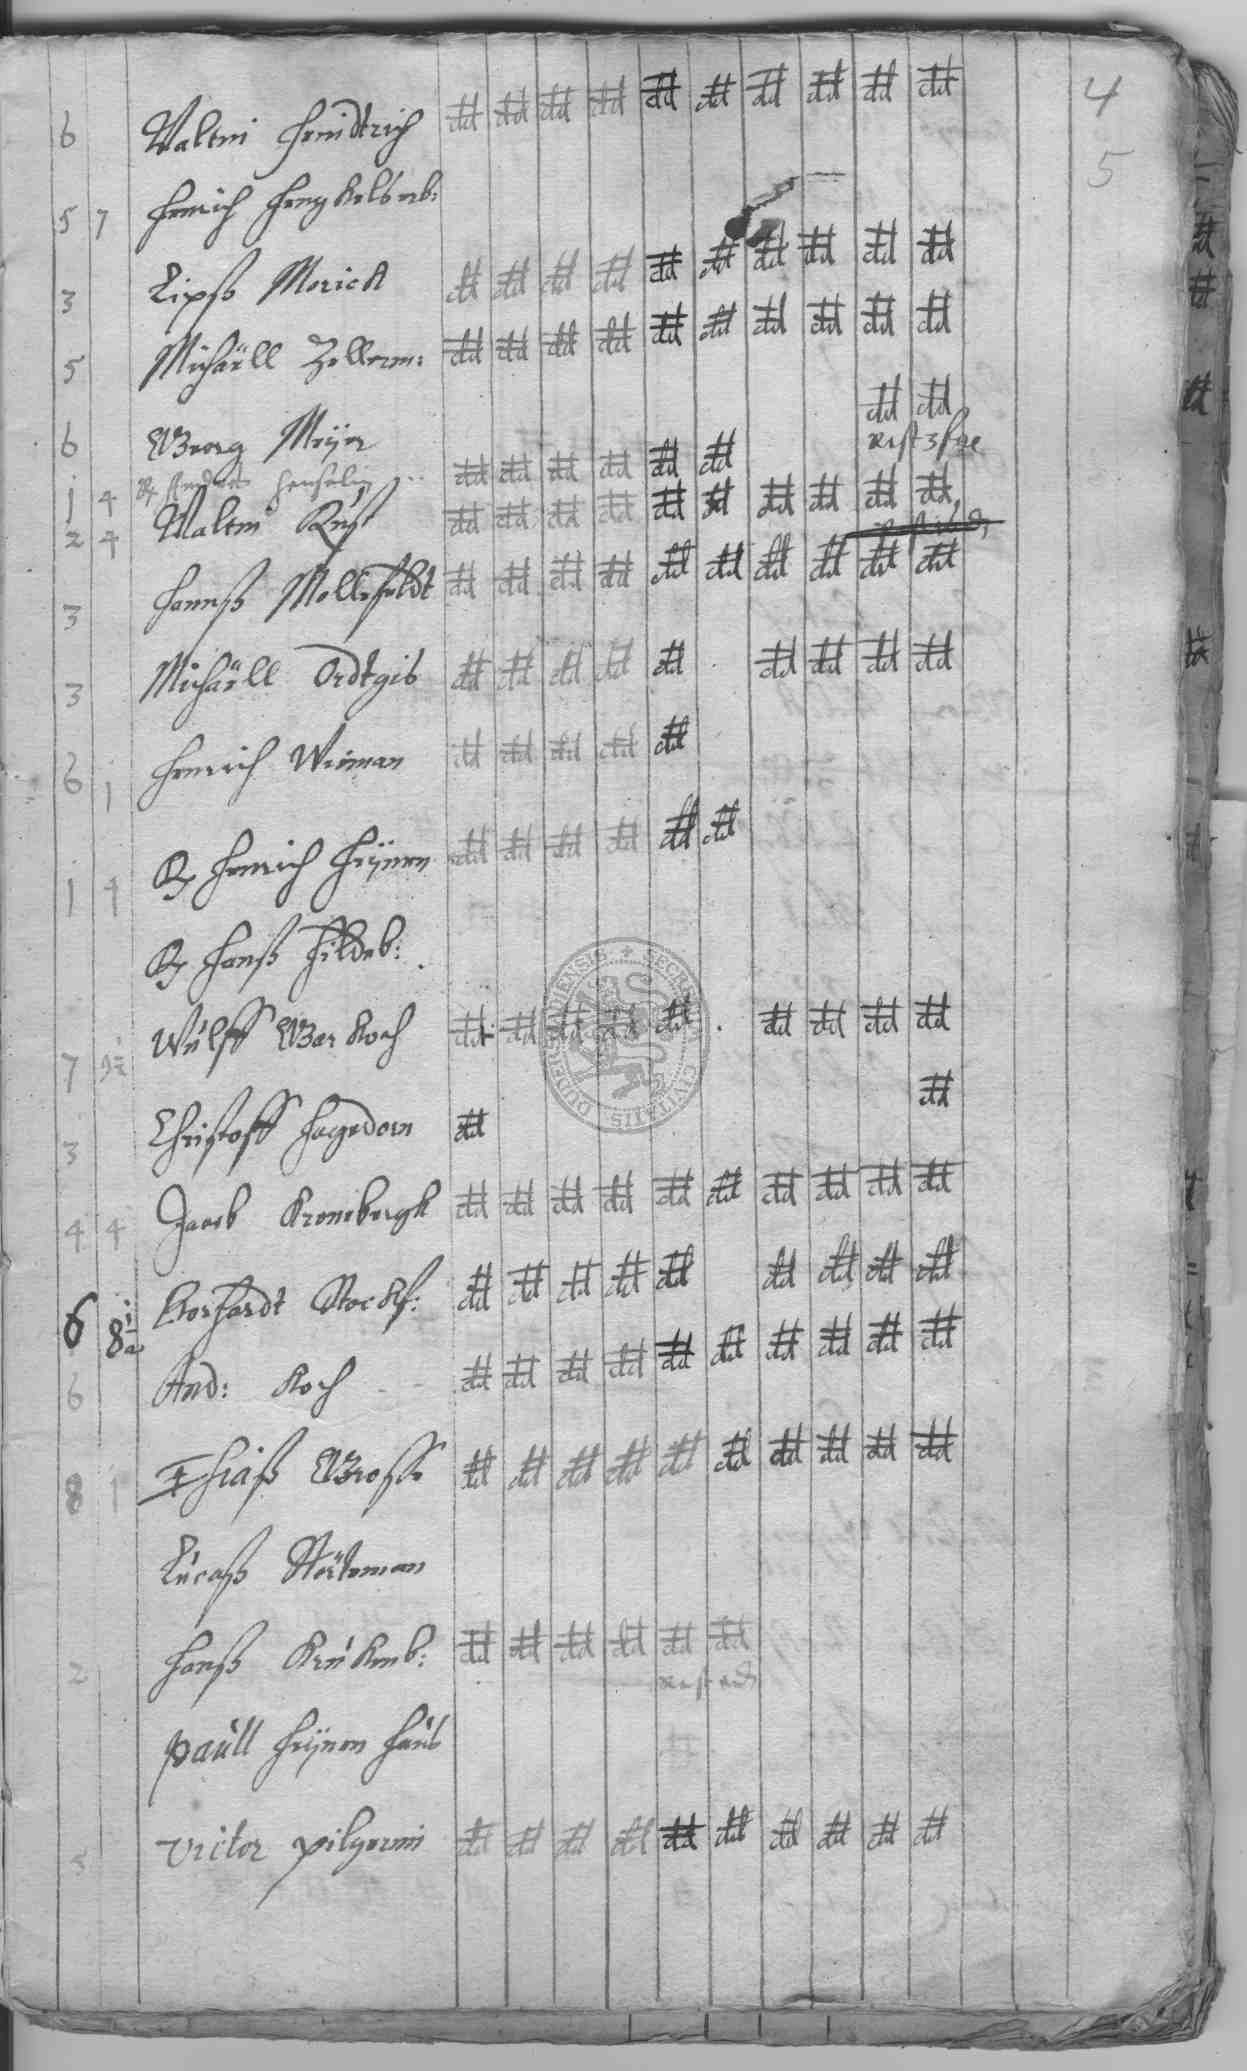 4
5
6 Valtin Heindtrich dd dd dd dd dd dd dd dd dd dd
5 7 Henrich Hengkelsberb:
3 Lipß Morick dd dd dd dd dd dd dd dd dd dd
5 Michäell Zellerm: dd dd dd dd dd dd dd dd dd dd
6 Georg Meÿer dd dd
rest 3
1 4 dd dd dd dd dd dd
2 4 Valtin Rust dd dd dd dd dd dd dd dd dd dd
3 Hannß Mollefeldt dd dd dd dd dd dd dd dd dd dd
3 Michäell Ordtgis dd dd dd dd dd dd dd dd dd
6 1 Henrich Wieman dd dd dd dd dd
1 4 R Henrich Heÿnen dd dd dd dd dd dd
R Hanß Hildeb:
7 Wulff Gerkoch dd dd dd dd dd dd dd dd dd
3 Christoff Hagedorn dd dd
4 4 Jacob Kronebergk dd dd dd dd dd dd dd dd dd dd
6 8½ Gerhardt Stockf: dd dd dd dd dd dd dd dd dd
6 And: Koch dd dd dd dd dd dd dd dd dd dd
8 1 Thiaß Große dd dd dd dd dd dd dd dd dd dd
Lucaß Störteman
2 Hanß Krukenb: dd dd dd dd dd dd
rest
Paull Heÿnen Hauß
Victor Pilgerim dd dd dd dd dd dd dd dd dd dd
SECRET CIVITATIS DUDERSTADIENSIS